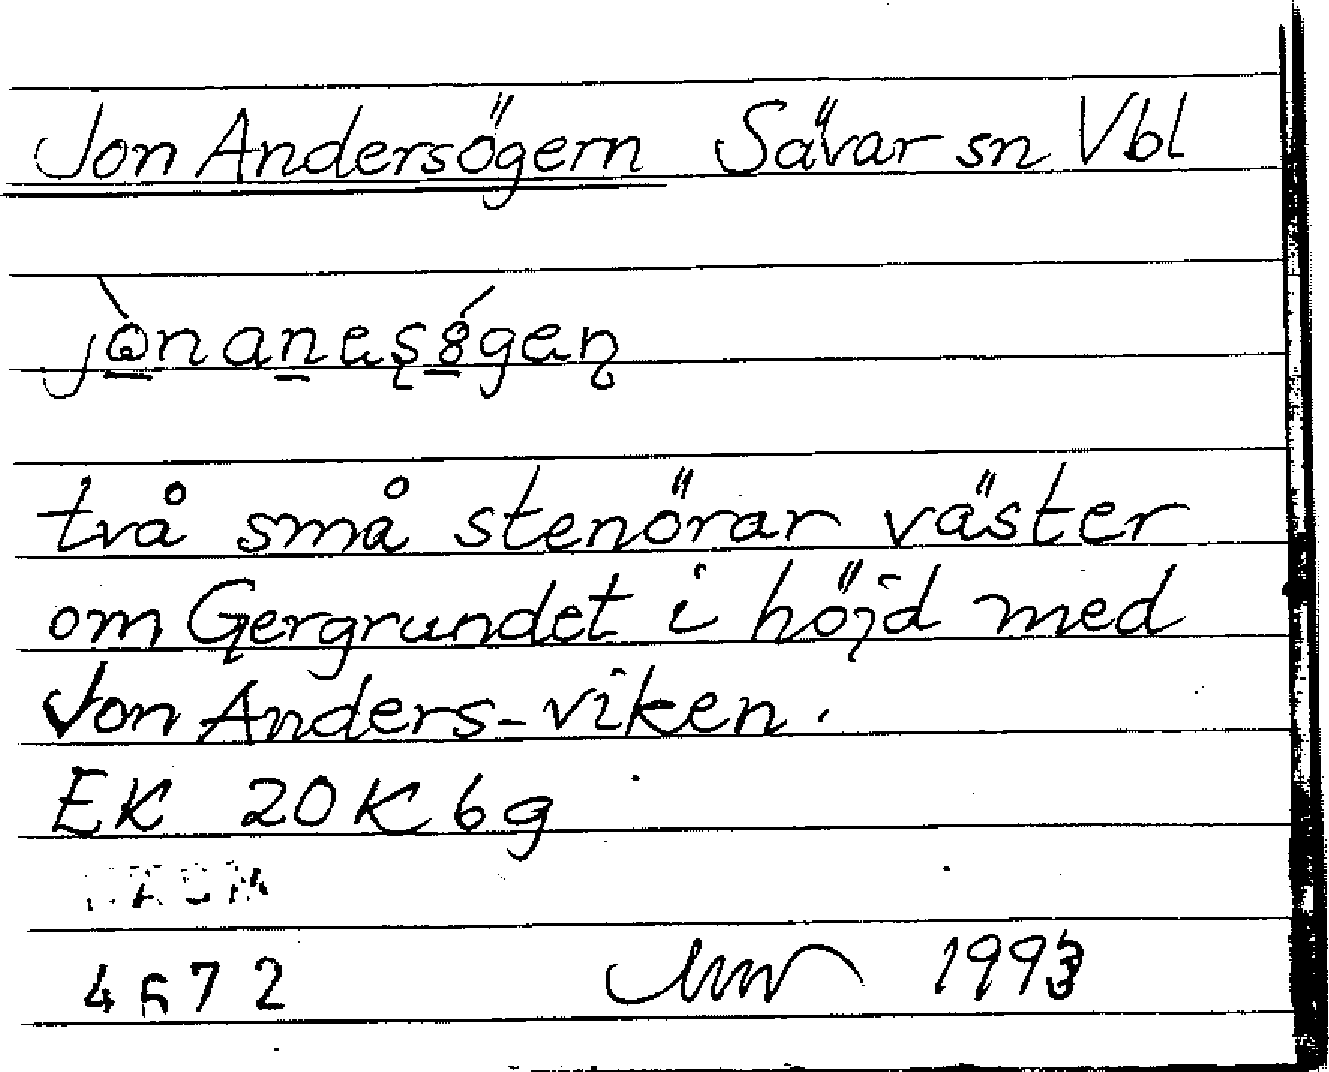 Jon Andersögern Sävar sn Vbl
två små stenörar väster
om Gergrundet i höjd med
Jon Anders-viken.
EK 20K6g
1993